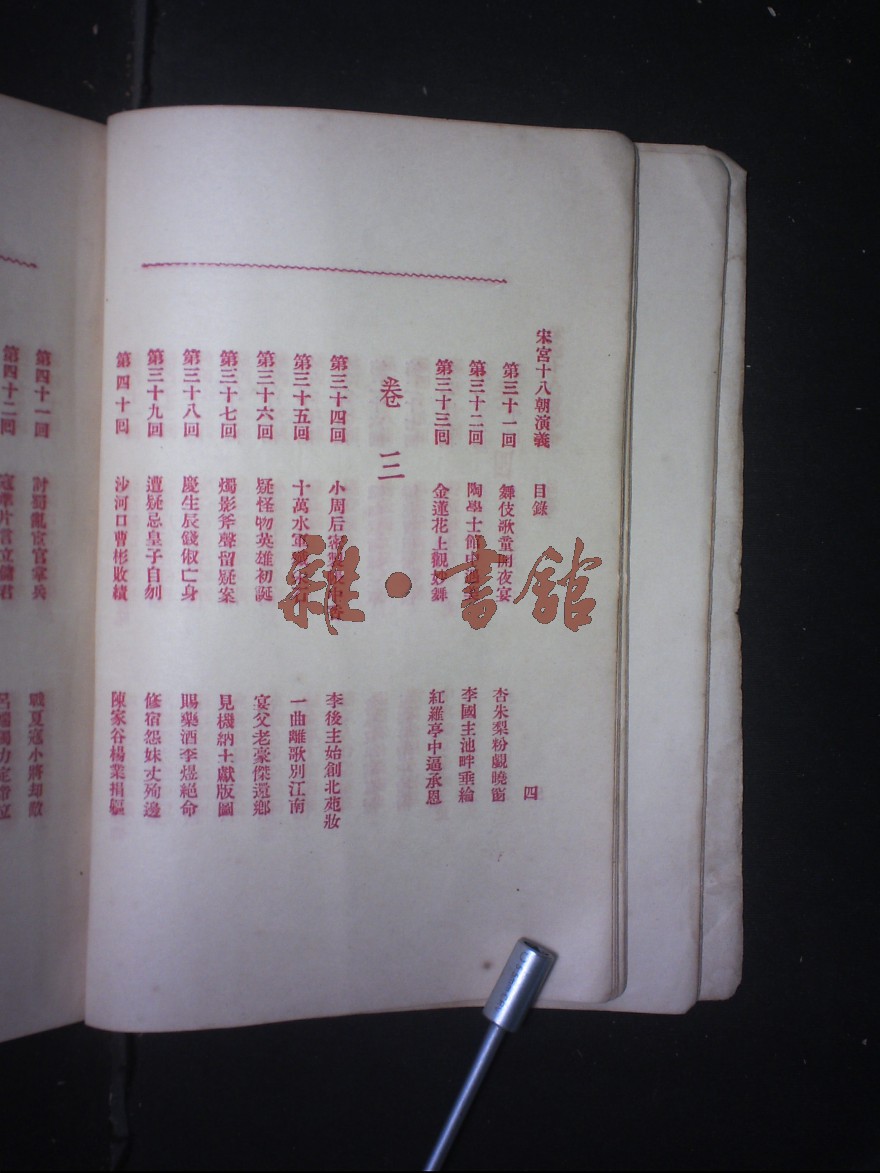 宋宮十八朝演義 目錄 四
第三十一回 舞伎歌童開夜宴 杏朱梨粉靚曉窗
第三十二回 陶學士館中 李國主池畔垂綸
第三十三回 金蓮花上觀妙舞 紅羅亭中逼承恩
卷三
第三十四回 小周后密製 李後主始創北苑妝
第三十五回 十萬水軍 一曲離歌別江南
第三十六回 疑怪物英雄初誕 宴父老豪傑還鄉
第三十七回 燭影斧聲留疑案 見機納土獻版圖
第三十八回 慶生辰錢俶亡身 賜藥酒李煜絕命
第三十九回 遭疑忌皇子自刎 修宿怨妹丈殉邊
第四十回 沙河口曹彬敗績 陳家谷楊業捐軀
第四十一回 討蜀亂宦官掌兵 戰夏寇小將却敵
第四十二回 寇準片言立儲君
雜·書館